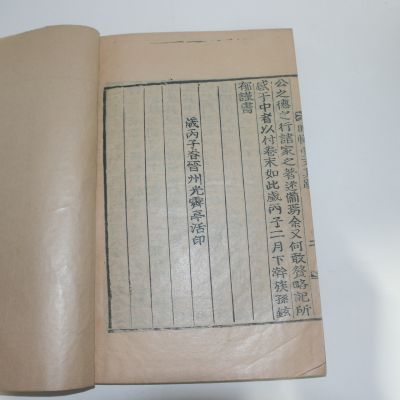 公之德之行諸家之著述備焉余又何敢發略記所
感于中者以付卷末如此歲丙子二月下澣族孫鉉
郁謹書
歲丙子春晉州光霽亭活印